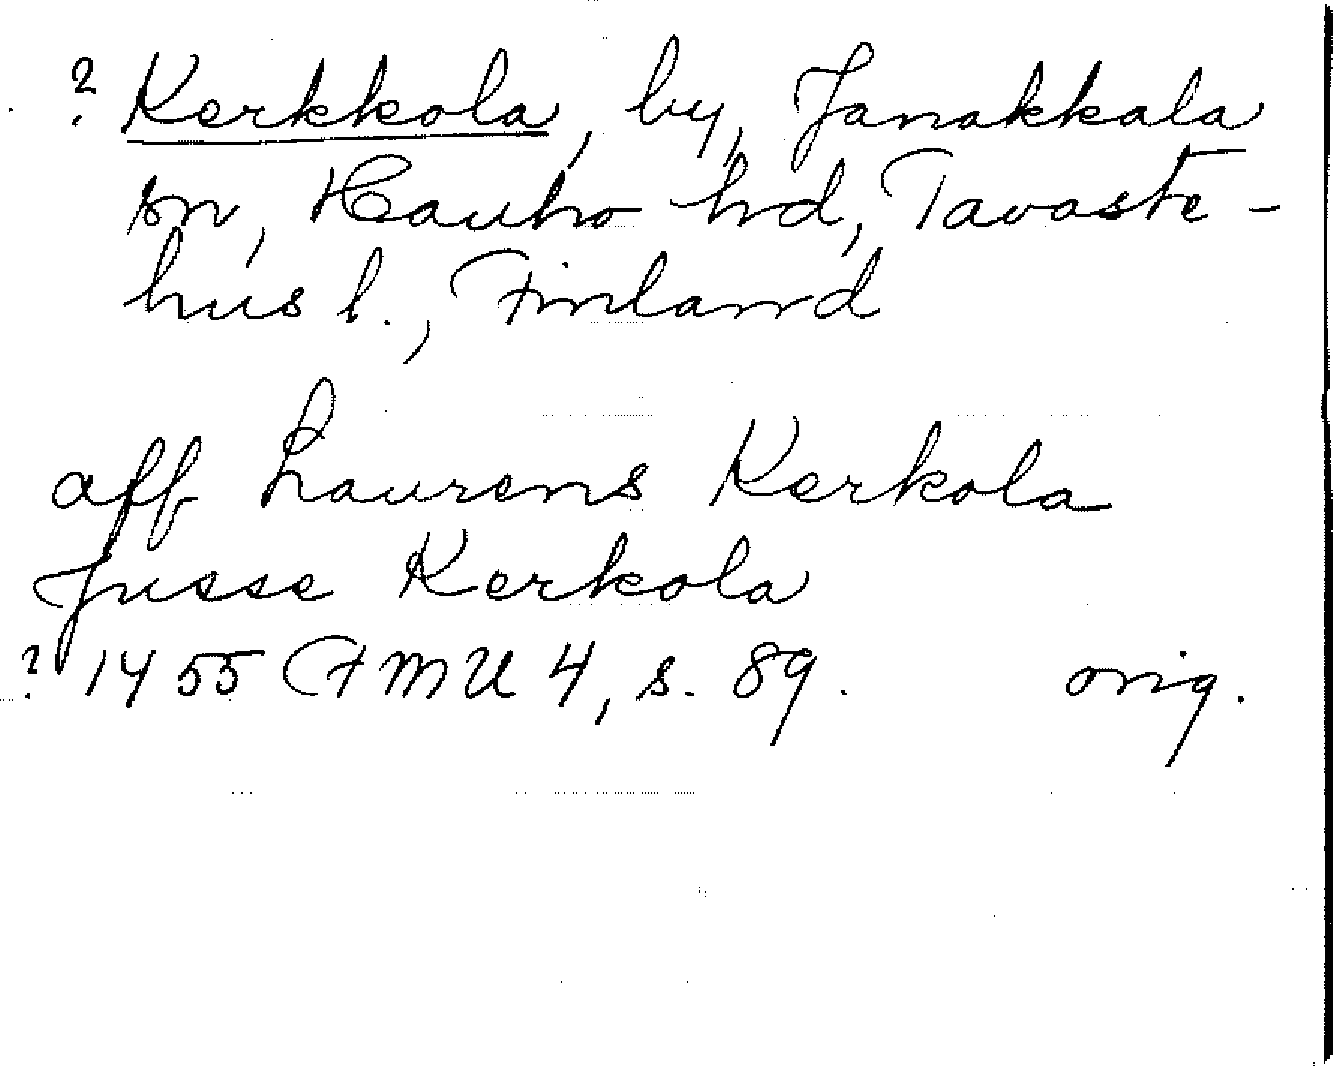 ? Kerkkola, by, Janakkala
sn, Hauho hd, Tavaste-
hus l., Finland
aff Laurens Kerkola
Jusse Kerkola
? 1455 FMU 4, s. 89. orig.